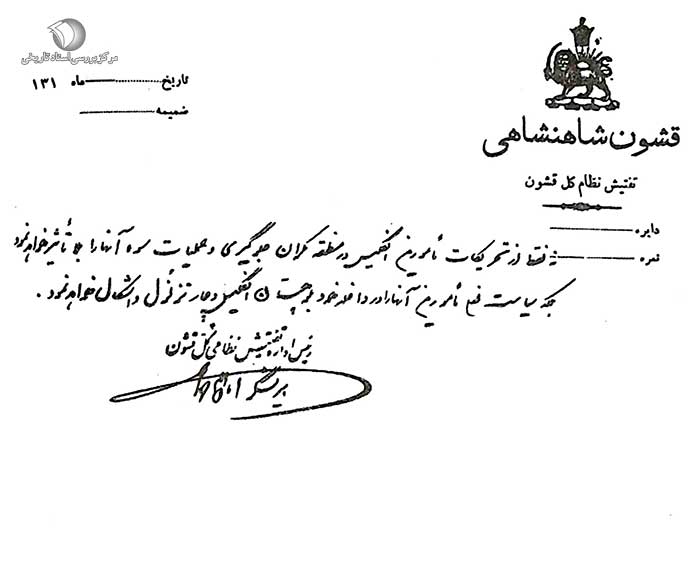 مرکز بررسی اسناد تاریخی
تاریخ ماه ۱۳۱
ضمیمه
قشون شاهنشاهی
تفتیش نظام کل قشون
دایره
نمره
نه فقط از تحریکات مأمورین انگلیس در منطقه مکران جلوگیری و عملیات سوء آنها را بلا تأثیر خواهد نمود
بلکه سیاست مأمورین آنها را در داخله خود بلوچستان انگلیس دچار تزلزل و اشکال خواهد نمود.
رئیس اداره تفتیش نظامی کل قشون